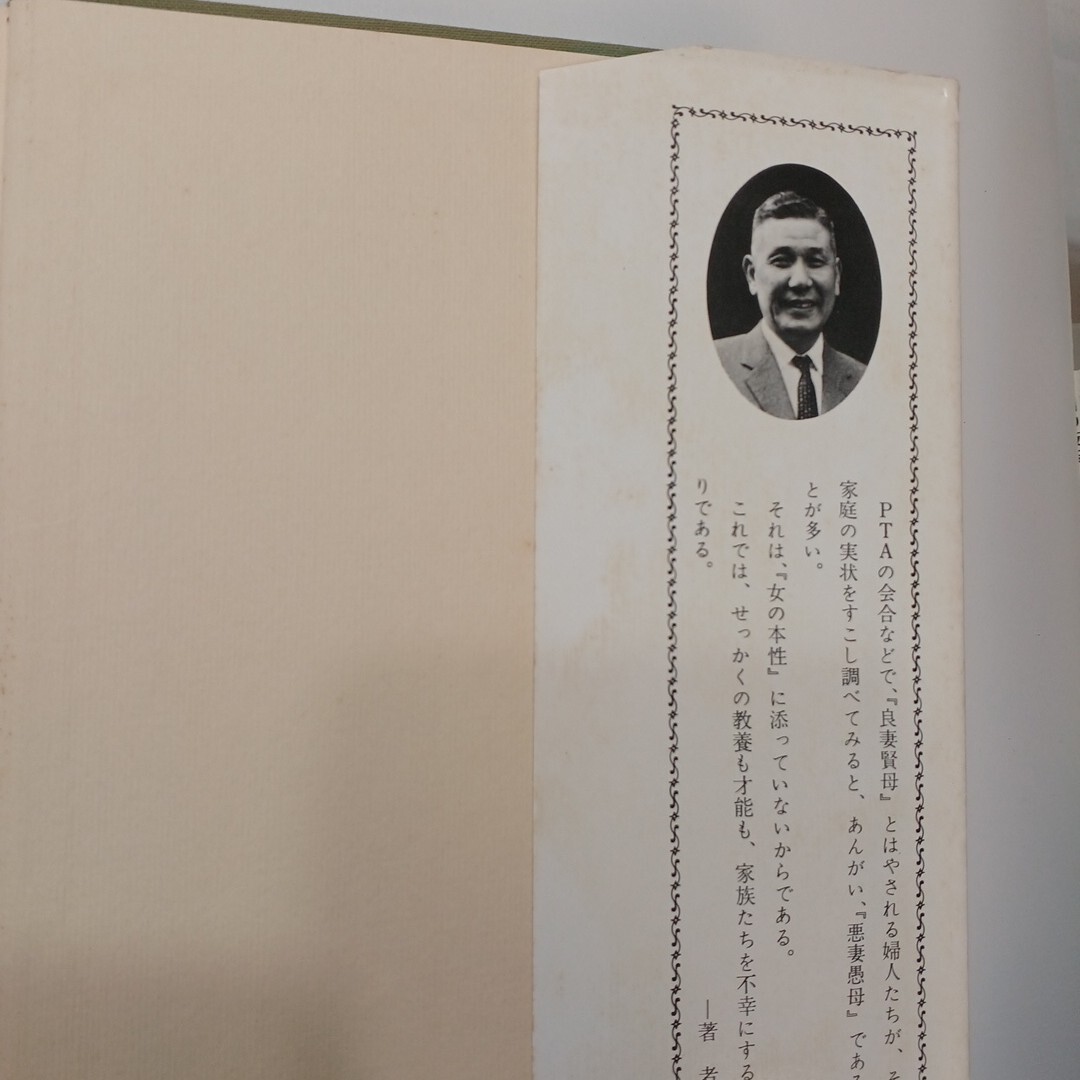 PTAの会合などで、『良妻賢母』とはやされる婦人たちが、そ
家庭の実状をすこし調べてみると、あんがい、『悪妻愚母』である
とが多い。
それは、『女の本性』に添っていないからである。
これでは、せっかくの教養も才能も、家族たちを不幸にする
りである。
—著者